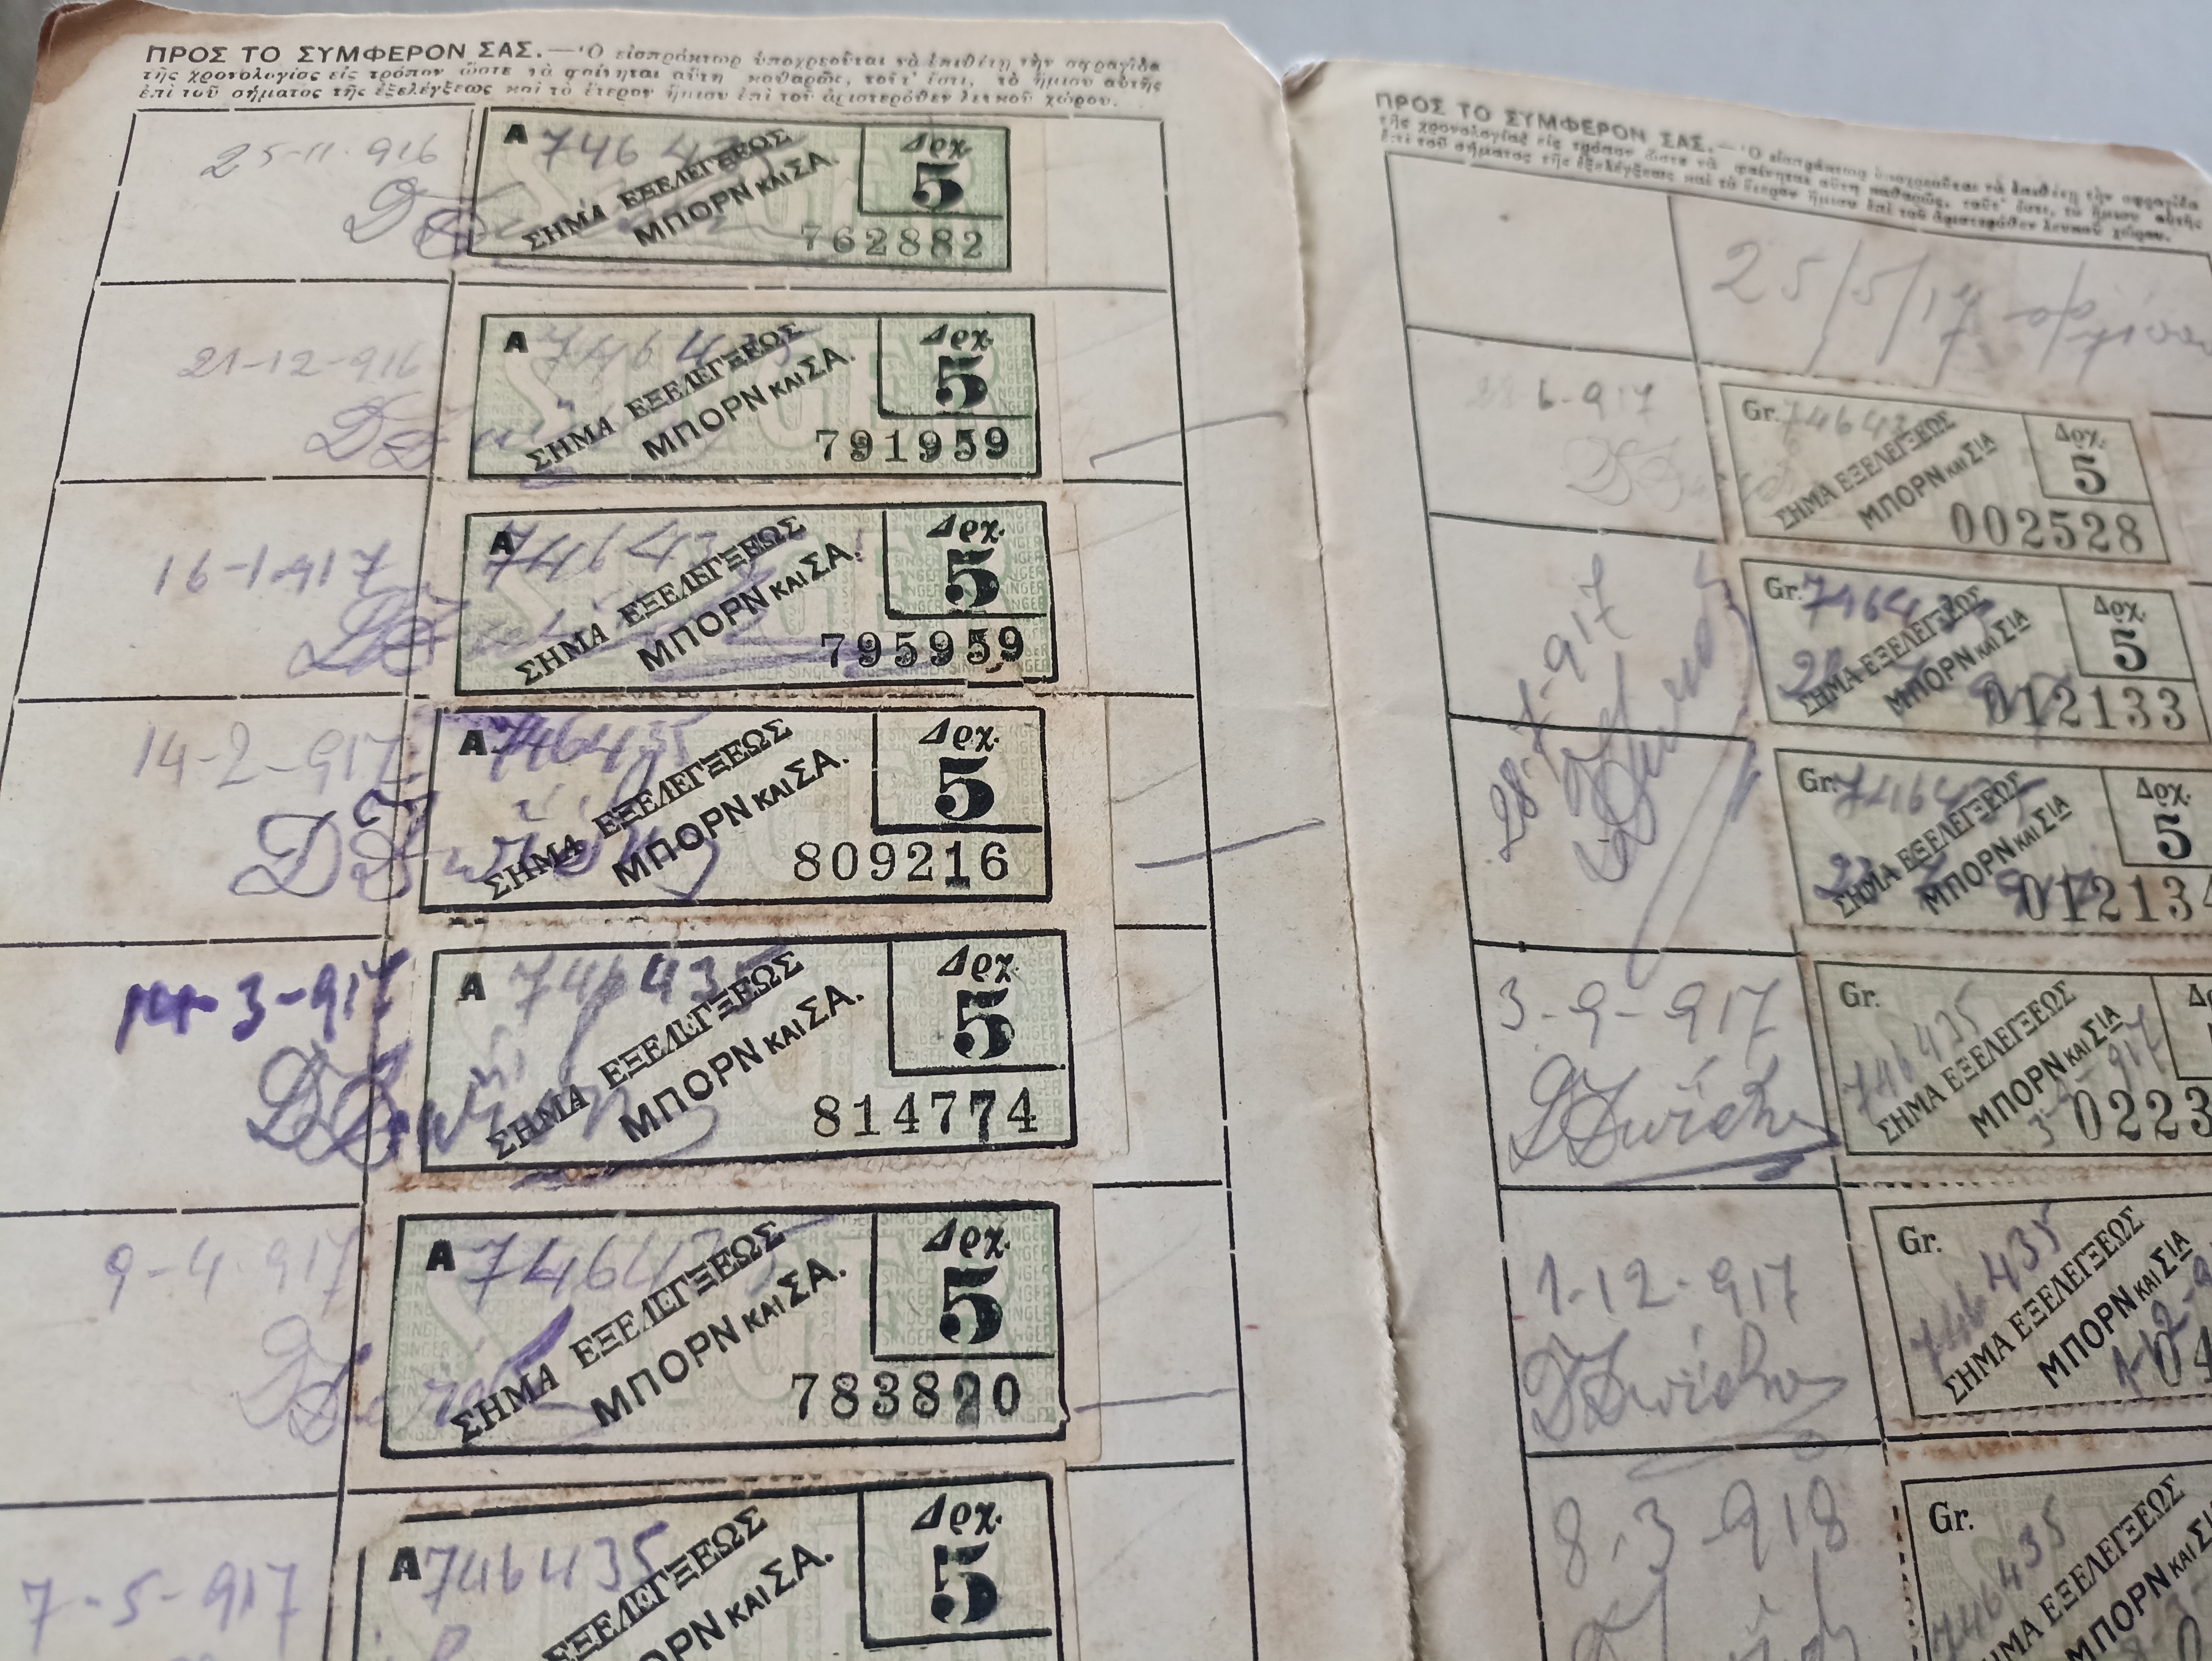 ΠΡΟΣ ΤΟ ΣΥΜΦΕΡΟΝ ΣΑΣ.—Ὁ εἰσπράκτωρ ὑποχρεοῦται νὰ ἐπιθέτῃ τὴν σφραγῖδα
τῆς χρονολογίας εἰς τρόπον ὥστε νὰ φαίνηται αὕτη καθαρῶς, τοῦτ' ἔστι, τὸ ἥμισυ αὐτῆς
ἐπὶ τοῦ σήματος τῆς ἐξελέγξεως καὶ τὸ ἕτερον ἥμισυ ἐπὶ τοῦ ἀριστερόθεν λευκοῦ χώρου.
25-11-916
A 746435
Δρχ.
5
ΣΗΜΑ ΕΞΕΛΕΓΞΕΩΣ
ΜΠΟΡΝ ΚΑΙ ΣΑ.
762882
21-12-916
A 746435
Δρχ.
5
ΣΗΜΑ ΕΞΕΛΕΓΞΕΩΣ
ΜΠΟΡΝ ΚΑΙ ΣΑ.
791959
16-1-917
A 746435
Δρχ.
5
ΣΗΜΑ ΕΞΕΛΕΓΞΕΩΣ
ΜΠΟΡΝ ΚΑΙ ΣΑ.
795959
14-2-917
A. 746435
Δρχ.
5
ΣΗΜΑ ΕΞΕΛΕΓΞΕΩΣ
ΜΠΟΡΝ ΚΑΙ ΣΑ.
809216
14-3-917
A 746435
Δρχ.
5
ΣΗΜΑ ΕΞΕΛΕΓΞΕΩΣ
ΜΠΟΡΝ ΚΑΙ ΣΑ.
814774
9-4-917
A 746435
Δρχ.
5
ΣΗΜΑ ΕΞΕΛΕΓΞΕΩΣ
ΜΠΟΡΝ ΚΑΙ ΣΑ.
783890
7-5-917
A 746435
Δρχ.
5
ΕΞΕΛΕΓΞΕΩΣ
ΟΡΝ ΚΑΙ ΣΑ.
ΠΡΟΣ ΤΟ ΣΥΜΦΕΡΟΝ ΣΑΣ.—Ὁ εἰσπράκτωρ ὑποχρεοῦται νὰ ἐπιθέτῃ τὴν σφραγῖδα
τῆς χρονολογίας εἰς τρόπον ὥστε νὰ φαίνηται αὕτη καθαρῶς, τοῦτ' ἔστι, τὸ ἥμισυ αὐτῆς
ἐπὶ τοῦ σήματος τῆς ἐξελέγξεως καὶ τὸ ἕτερον ἥμισυ ἐπὶ τοῦ ἀριστερόθεν λευκοῦ χώρου.
25/5/17
6-917
Gr. 746435
Δρχ.
5
ΣΗΜΑ ΕΞΕΛΕΓΞΕΩΣ
ΜΠΟΡΝ ΚΑΙ ΣΙΑ
002528
28-7-917
Gr. 746435
Δρχ.
5
ΣΗΜΑ ΕΞΕΛΕΓΞΕΩΣ
ΜΠΟΡΝ ΚΑΙ ΣΙΑ
012133
Gr. 746435
Δρχ.
5
ΣΗΜΑ ΕΞΕΛΕΓΞΕΩΣ
ΜΠΟΡΝ ΚΑΙ ΣΙΑ
012134
3-9-917
Gr.
746435
ΣΗΜΑ ΕΞΕΛΕΓΞΕΩΣ
ΜΠΟΡΝ ΚΑΙ ΣΙΑ
3-9-917
0223
1-12-917
Gr.
746435
ΣΗΜΑ ΕΞΕΛΕΓΞΕΩΣ
ΜΠΟΡΝ ΚΑΙ ΣΙΑ
04
8-3-918
Gr.
746435
ΣΗΜΑ ΕΞΕΛΕΓΞΕΩΣ
ΜΠΟΡΝ ΚΑΙ ΣΙΑ